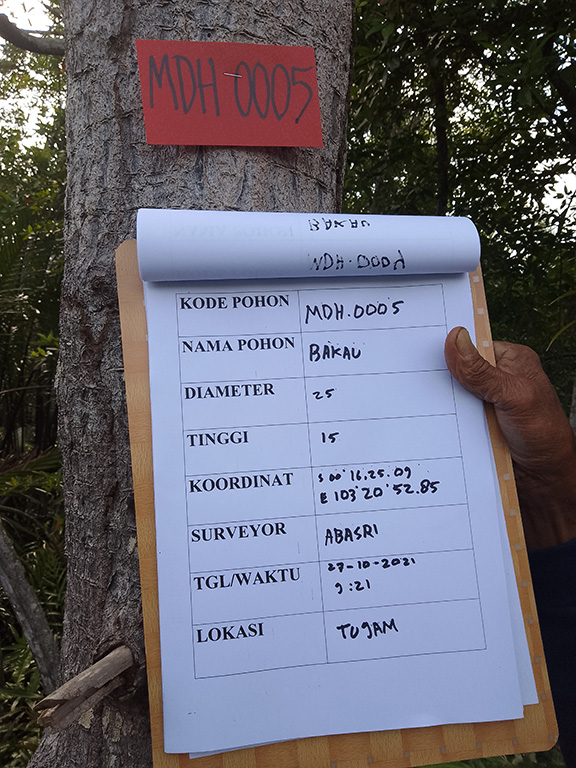 MDH-0005
BAKAU
MDH.000
KODE POHON MDH.0005
NAMA POHON BAKAU
DIAMETER 25
TINGGI 15
KOORDINAT S 00°16.25.09
E 103°20'52.85
SURVEYOR ABASRI
TGL/WAKTU 27-10-2021
9:21
LOKASI TUJAM